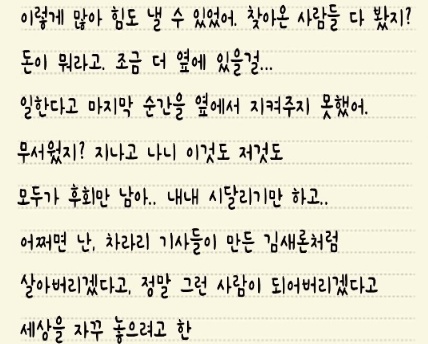 이렇게 많아 힘도 낼 수 있었어. 찾아온 사람들 다 봤지?
돈이 뭐라고. 조금 더 옆에 있을걸...
일한다고 마지막 순간을 옆에서 지켜주지 못했어.
무서웠지? 지나고 나니 이것도 저것도
모두가 후회만 남아.. 내내 시달리기만 하고..
어쩌면 난, 차라리 기사들이 만든 김새론처럼
살아버리겠다고, 정말 그런 사람이 되어버리겠다고
세상을 자꾸 놓으려고 한